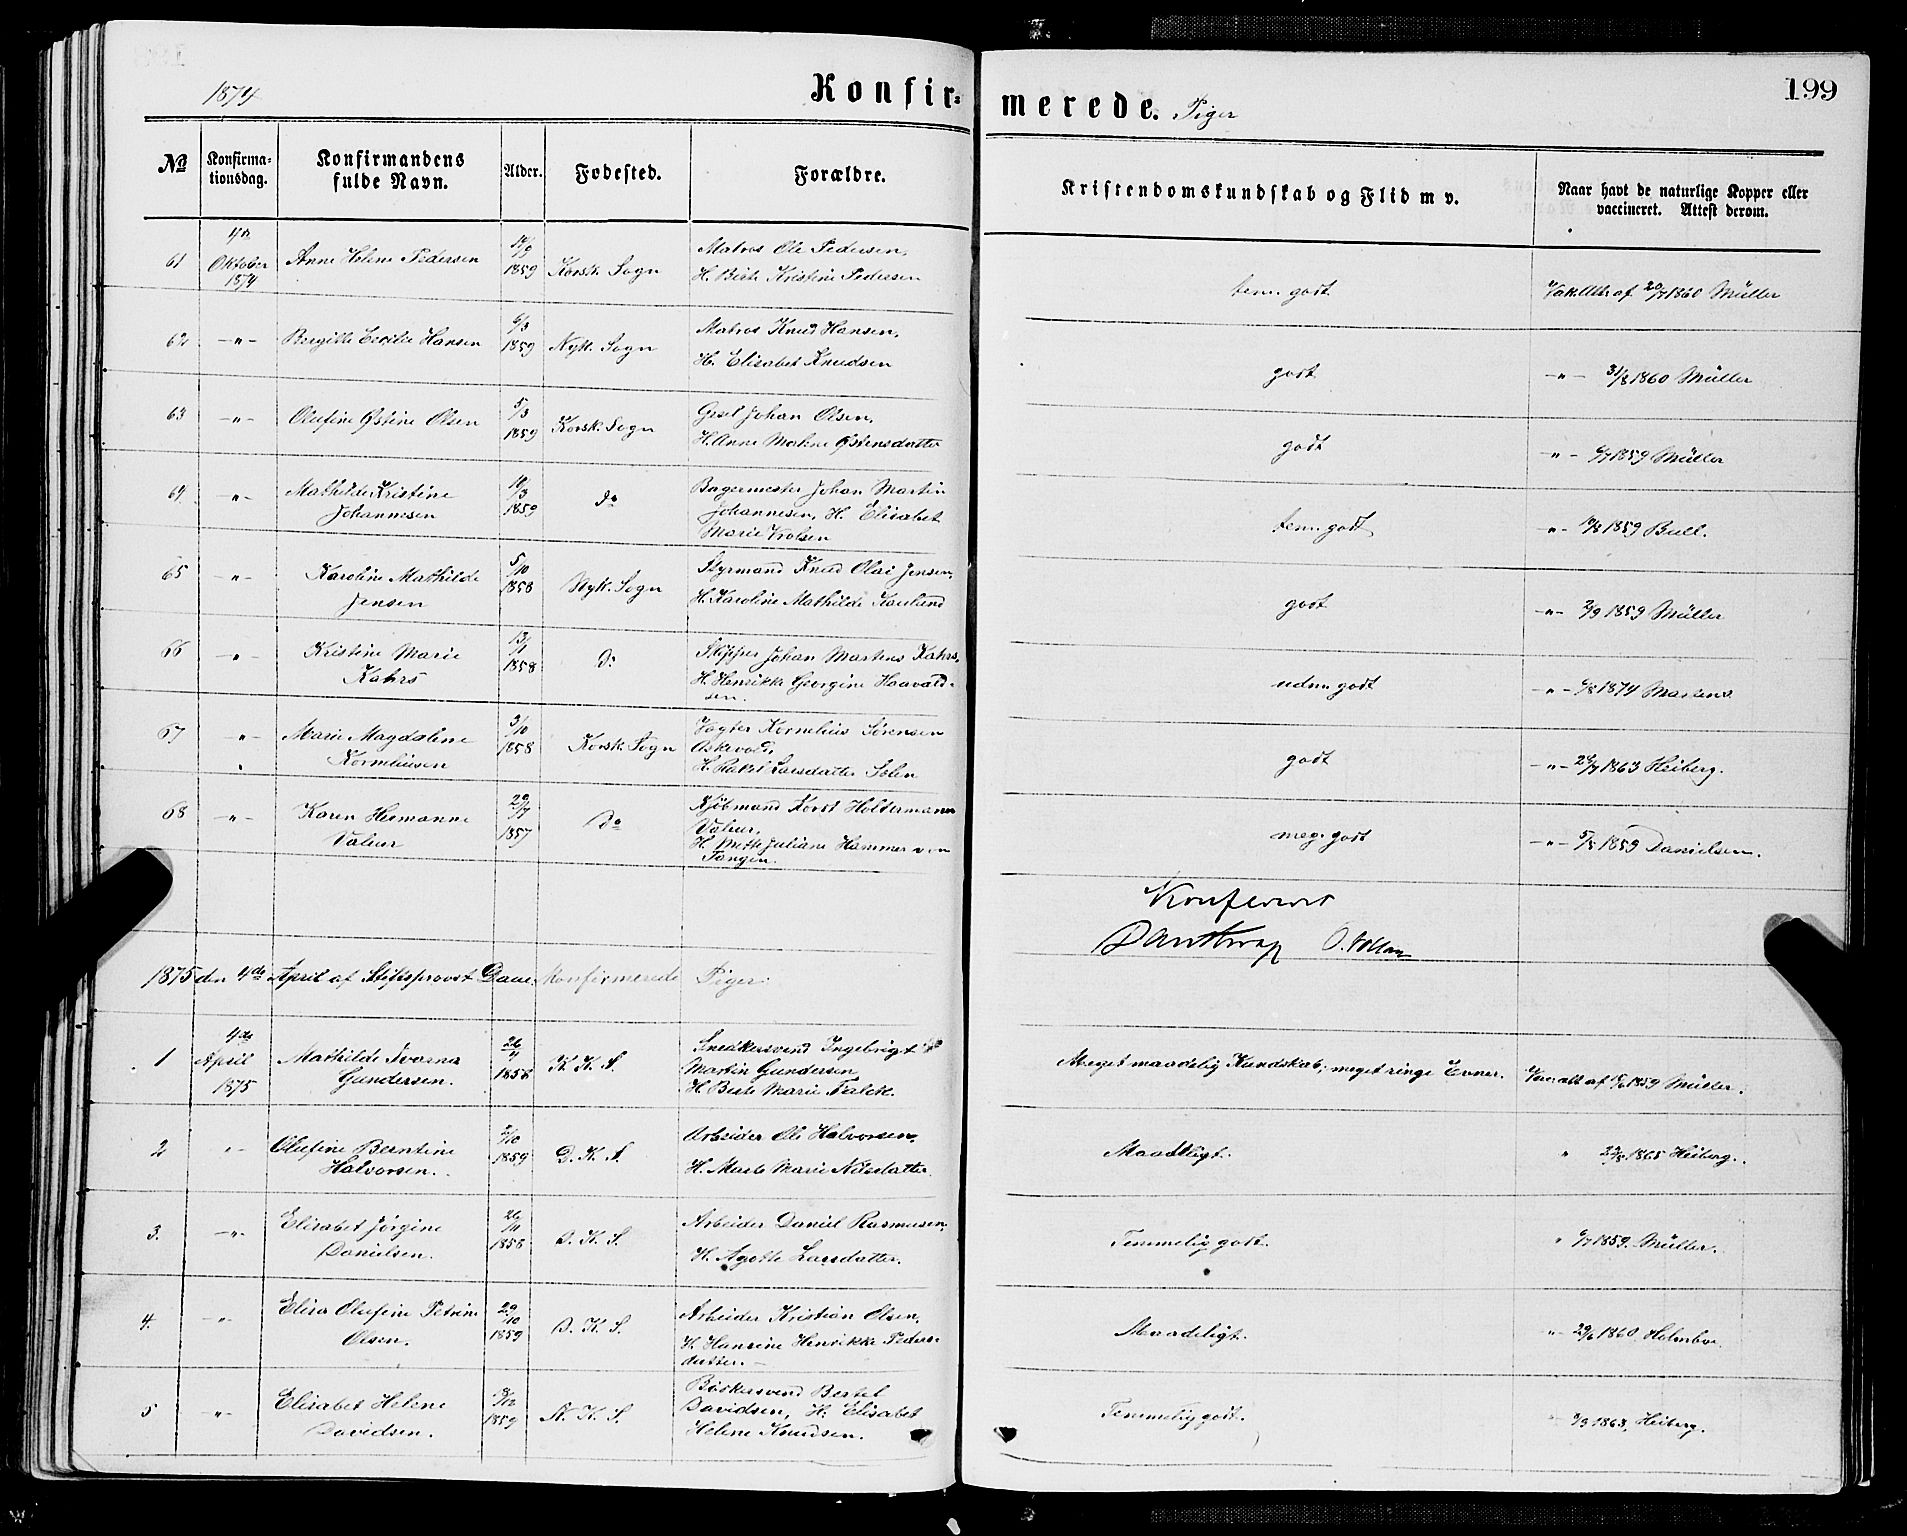 1874
Konfir-
merede. Piger
199
No
Konfirma-
tionsdag.
Konfirmandens
fulde Navn.
Alder.
Fødested.
Forældre.
Kristendomskundskab og Flid m v.
Naar havt de naturlige Kopper eller
vaccineret. Attest derom.
61 Oktober 1874 Anne Helene Pedersen 1859 Korsk. Sogn Matros Ole Pedersen,
H. Berte Kristine Pedersen
tem. godt 1860 Müller
62 -"- Bergitte Cecilie Hansen 6/3 1859 Nyk. Sogn Matros Knud Hansen,
H. Elisabet Knudsen
godt -"- 31/8 1860 Müller
63 -"- Olufine Østine Olsen 5/3 1859 Korsk. Sogn Johan Olsen,
H. Anne Østensdatter
godt -"- 1859 Müller
64. -"- Mathilde Kristine
Johannesen
1859 do Bagermester Johan Martin
Johannesen, H. Elisabet
Marie
tem. godt "- 1859 Bull.
65 -"- Karoline Mathilde
Jensen
5/10 1858 Nyk. Sogn Styrmand Knud Olai Jensen,
H. Karoline Mathilde
godt -"- 2/9 1859 Müller
66 -"- Kristine Marie
Kahrs
1858 do Skipper Johan Martens Kahrs,
H. Henrikke Georgine Haavald-
sen.
udm. godt -"- 1874 Martens
67 -"- Marie Magdalene
Korneliusen
3/10 1858 Korsk. Sogn Vagter Kornelius Sørensen
Askevold,
H. Rakel Larsdatter
godt -"- 1863 Heiberg.
68 -"- Karen Hermanne
Valeur
1857 do Kjøbmand Holtermann
Valeur,
H. Mette Juliane Hammer von
Tangen.
meg. godt -"- 1859 Danielsen.
Konfereret
1875 den 4de April af Stiftsprovst Daae konfirmerede Piger:
1 4de April 1875 Mathilde
Gundersen.
26 1858 K. K. S. Snedkersvend Ingebrigt
Martin Gundersen
H. Berte Marie Falck.
Meget maadelig Kundskab, meget ringe Evner. 1859 Müller.
2 "- Olufine Berntine
Halvorsen.
1859 D. K. S. Arbeider Ole Halvorsen,
H. Marte Marie Nilsdatter
Maadeligt. " 1865 Heiberg.
3. -"- Elisabet Jørgine
Danielsen.
26/11 1858 D. K. S. Arbeider Daniel Rasmussen,
H. Agathe Larsdatter.
Temmelig godt. " 1859. Müller.
4. -"- Elisa Olufine Petrine
Olsen.
29/10 1859 D. K. S. Arbeider Kristian Olsen,
H. Hansine Henrikke Peders-
datter.
Maadeligt. "- 29/6 1860 Holmboe.
5 -"- Elisabet Helene
Davidsen.
1859 N. K. S. Bødkersvend Bertel
Davidsen, H. Elisabet
Helene Knudsen.
Temmelig godt. 1863, Heiberg.